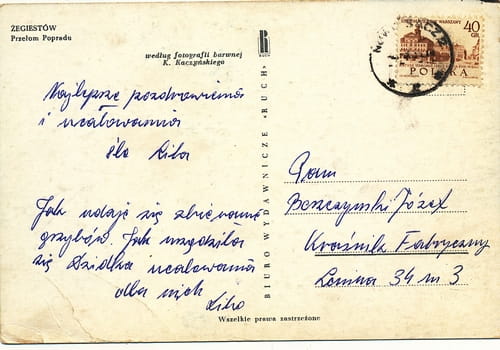 ŻEGIESTÓW
Przełom Popradu
według fotografii barwnej
K. Kaczyńskiego
BIURO WYDAWNICZE «RUCH»
40
GR
POLSKA
NOWY SĄCZ
Najlepsze pozdrowienia
i ucałowania
śle Lila
Jak udaje się zbieranie
grzybów. Jak urządziła
się Dzidka ucałowania
dla nich
Lila
Pan
Józef
Kraśnik Fabryczny
Lenina 34 m 3
Wszelkie prawa zastrzeżone